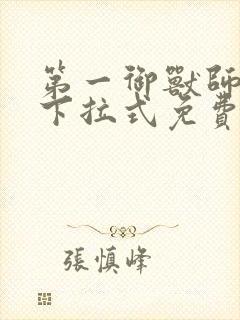 第一御獸師
下拉式免費
張慎峰